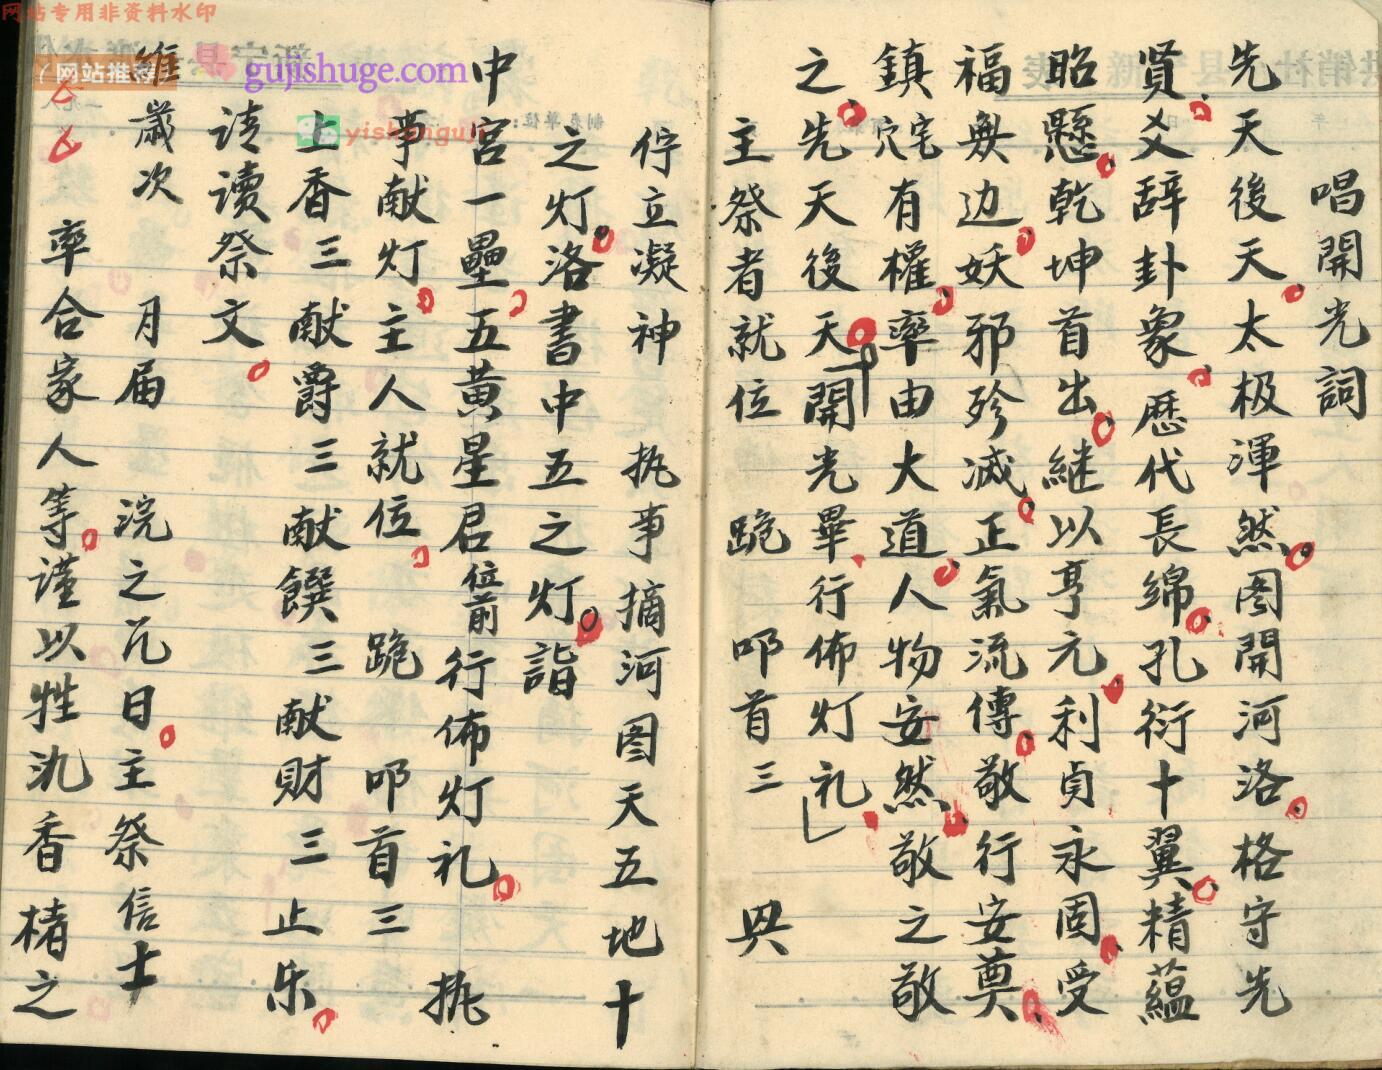 唱開光詞
先天後天太极渾然图開河洛格守先
贤爻辞卦象歷代長綿孔衍十翼精蕴
昭懸乾坤首出継以亨元利貞永固受
福無边妖邪殄滅正氣流傳敬行安奠
鎮穴宅有權率由大道人物安然敬之敬
之先天後天開光畢行佈灯礼
主祭者就位 跪 叩首三 興
佇立凝神 执事摘河图天五地十
之灯洛書中五之灯詣
中宫一壘五黄星君位前行佈灯礼 执
事献灯主人就位 跪 叩首三
上香三献爵三献饌三献财三止乐
请读祭文
維歲次 月届 浣之几日主祭信士
率合家人等谨以牲氿香楮之
网站专用非资料水印
网站推荐
gujishuge.com
yishenguji